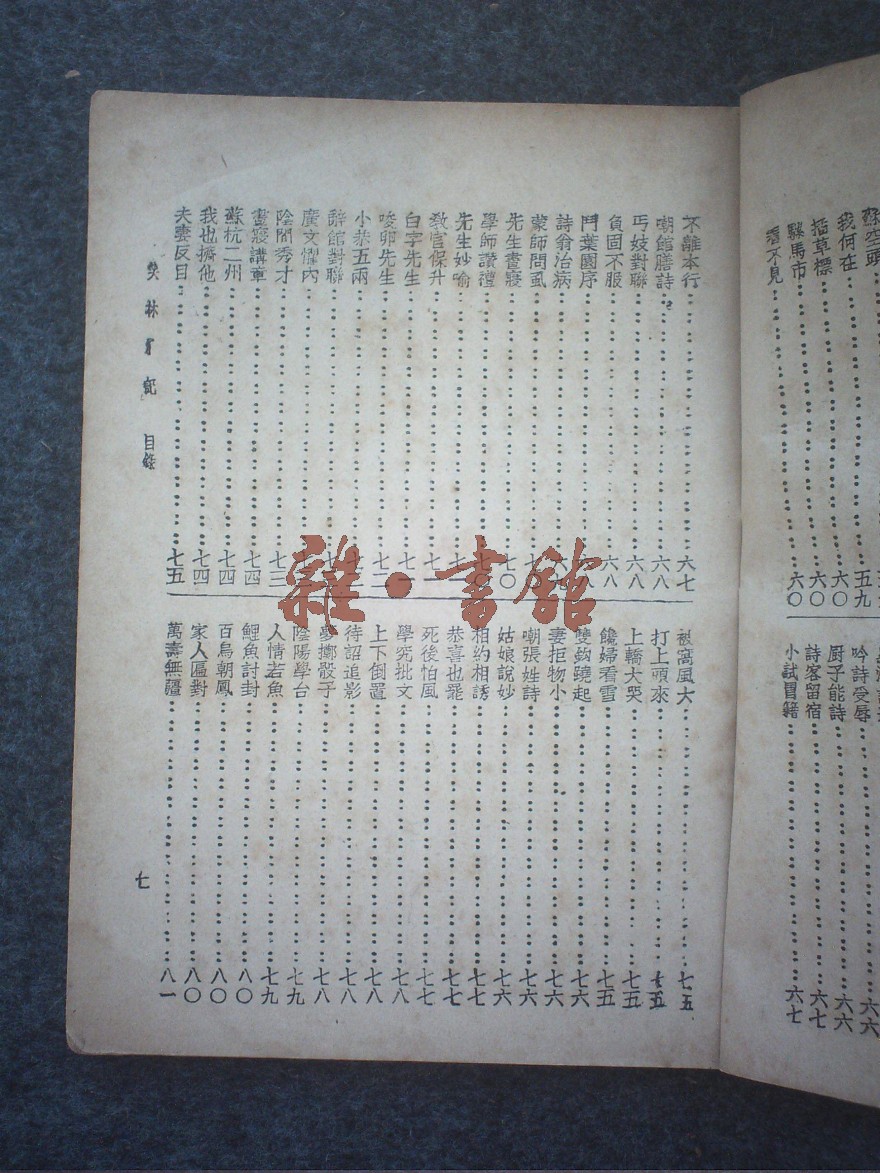 蘇空頭
我何在
五九
插草標
六〇
騾馬市
六〇
看不見
六〇
吟詩受辱
六六
厨子能詩
六六
詩客留宿
六七
小試冒籍
六七
不離本行
六七
嘲館膳詩
六八
丐妓對聯
六八
負固不服
六八
鬥葉園序
詩翁治病
蒙師問虱
先生晝寢
七〇
學師讚禮
先生妙喻
教官保升
白字先生
唆卵先生
七二
小恭五兩
辭館對聯
廣文懼內
陰間秀才
七三
晝寢講章
七四
蘇杭二州
七四
我也擠他
七四
夫妻反目
七五
被窩風大
七五
打上頭來
七五
上轎大哭
七五
饞婦看雪
七五
雙欽蹺起
七六
妻拒物小
七六
嘲張姓詩
七六
姑娘說妙
七六
相約相誘
七七
恭喜也罷
七七
死後怕風
七七
學究批文
七八
上下倒置
七八
待詔追影
七八
夢擲骰子
七八
陰陽學台
七九
人情若魚
七九
鯉魚討封
八〇
百鳥朝鳳
八〇
家人匾對
八〇
萬壽無疆
八一
目錄
七
雜·書館